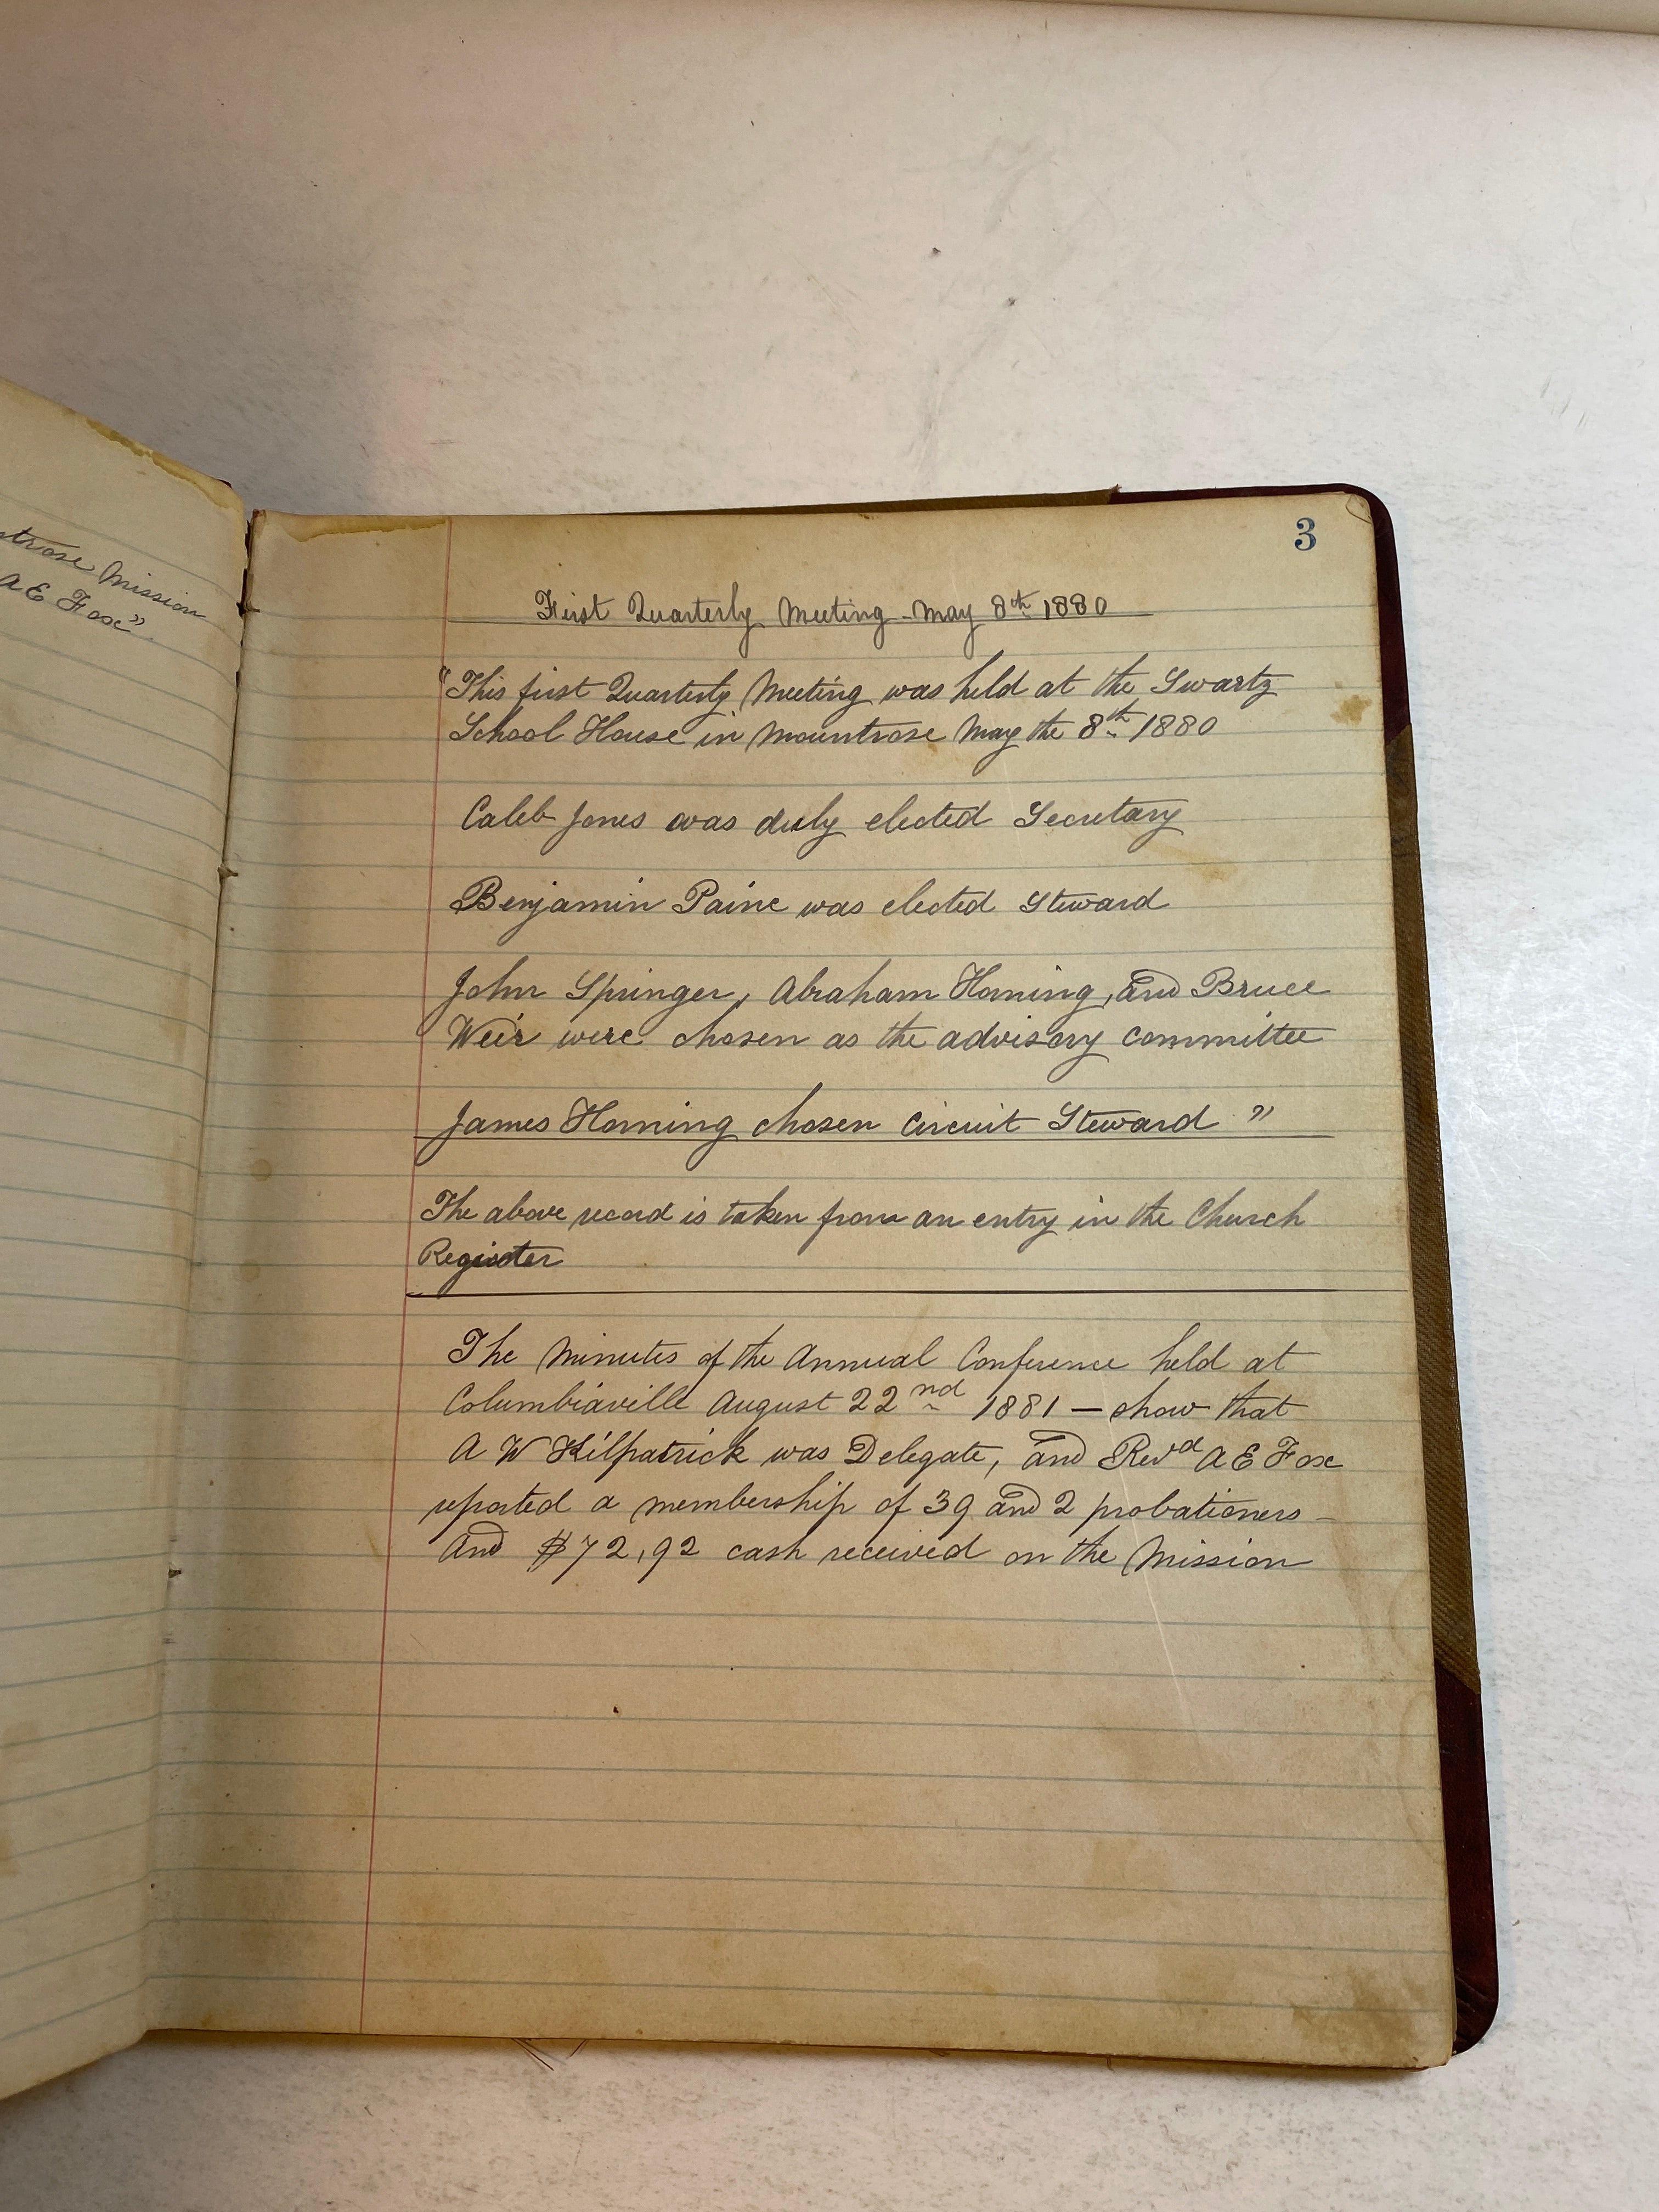 strose Mission
A E Fox"
3
First Quarterly Meeting - May 8th 1880
"This first Quarterly Meeting was held at the Swartz
School House in Mountrose May the 8th 1880
Caleb Jones was duly elected Secretary
Benjamin Paine was elected Steward
John Springer, Abraham Horning, and Bruce
Weir were chosen as the advisory committee
James Horning chosen Circuit Steward "
The above record is taken from an entry in the Church
Register
The Minutes of the Annual Conference held at
Columbiaville August 22nd 1881 — show that
A W Kilpatrick was Delegate, and Revd A E Fox
reported a membership of 39 and 2 probationers -
And $72,92 cash received on the Mission